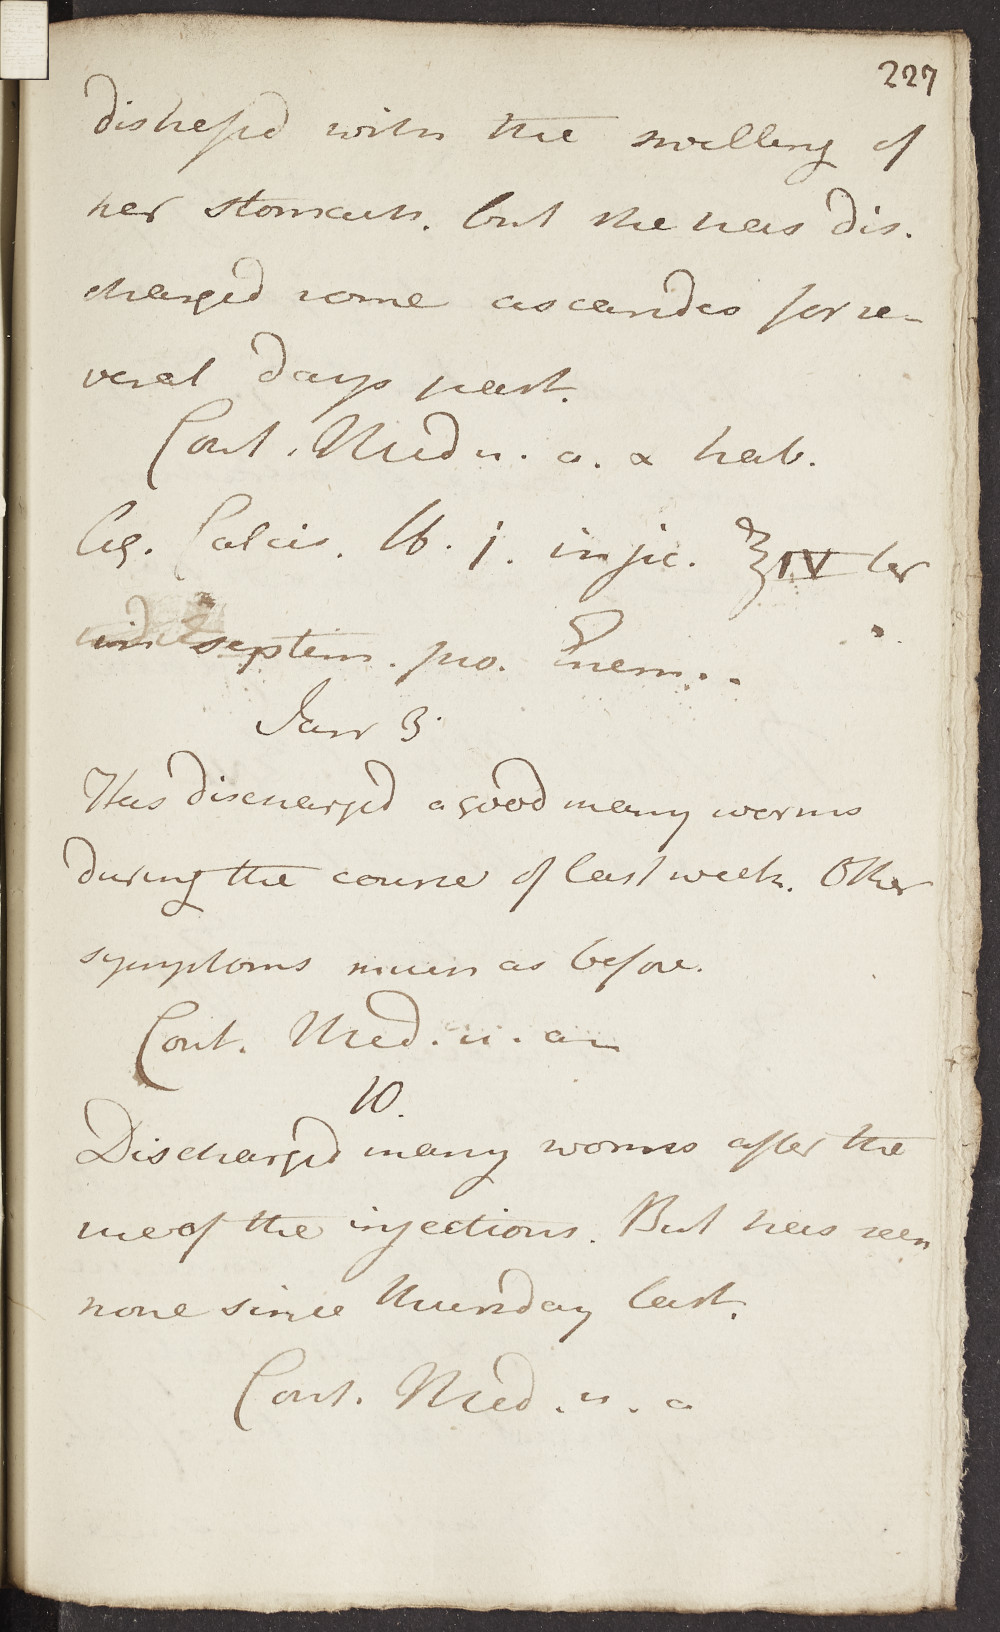 227
distressed with the swelling of
her stomach. but she has dis.
charged some ascarides for se-
veral days past.
Cont. Med u. a. & hab.
Aq. Calcis. lb. j. injic. ℥IV ter
in septim. pro. Enem..
Janr 3.
Has discharged a good many worms
during the course of last week. Other
symptoms much as before.
Cont. Med. u. a
10.
Discharged many worms after the
use of the injections. But has seen
none since Thursday last.
Cont. Med. u. a